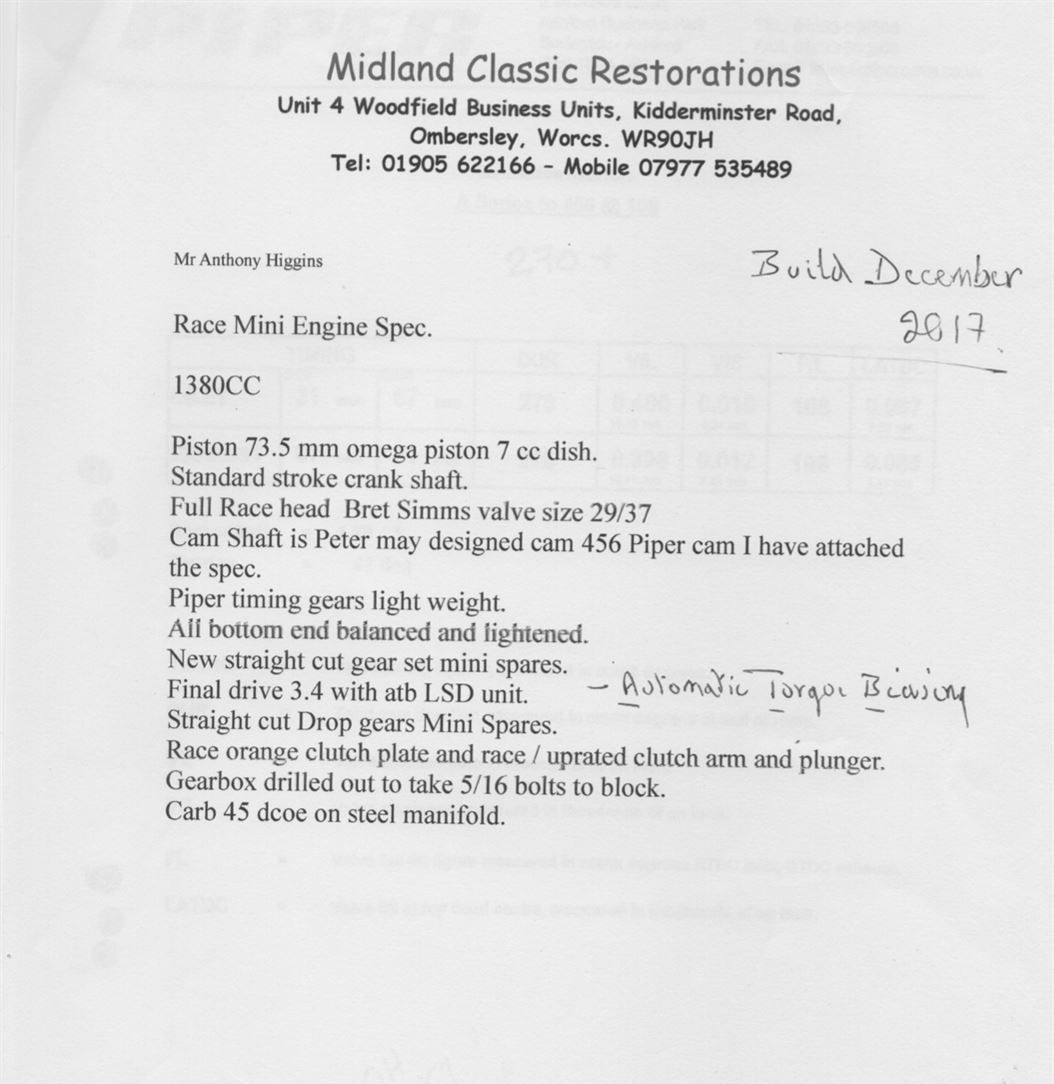 Midland Classic Restorations
Unit 4 Woodfield Business Units, Kidderminster Road,
Ombersley, Worcs. WR90JH
Tel: 01905 622166 - Mobile 07977 535489
A Series to 456 @ 108
270+
Mr Anthony Higgins
Build December
2017
Race Mini Engine Spec.
1380CC
Piston 73.5 mm omega piston 7 cc dish.
Standard stroke crank shaft.
Full Race head Bret Simms valve size 29/37
Cam Shaft is Peter may designed cam 456 Piper cam I have attached
the spec.
Piper timing gears light weight.
All bottom end balanced and lightened.
New straight cut gear set mini spares.
Final drive 3.4 with atb LSD unit. - Automatic Torque Biasing
Straight cut Drop gears Mini Spares.
Race orange clutch plate and race / uprated clutch arm and plunger.
Gearbox drilled out to take 5/16 bolts to block.
Carb 45 dcoe on steel manifold.